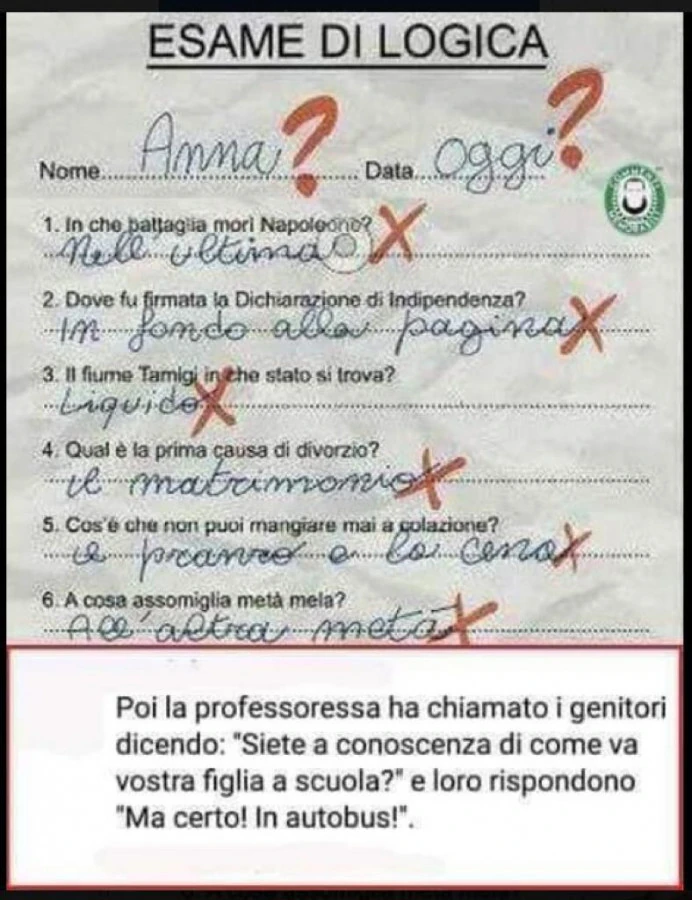 ESAME DI LOGICA
Nome.... Anna ? .... Data.... oggi ?
1. In che battaglia morì Napoleone?
Nell'ultima
2. Dove fu firmata la Dichiarazione di Indipendenza?
In fondo alla pagina
3. Il fiume Tamigi in che stato si trova?
Liquido
4. Qual è la prima causa di divorzio?
il matrimonio
5. Cos'è che non puoi mangiare mai a colazione?
il pranzo e la cena
6. A cosa assomiglia metà mela?
All'altra metà
Poi la professoressa ha chiamato i genitori
dicendo: "Siete a conoscenza di come va
vostra figlia a scuola?" e loro rispondono
"Ma certo! In autobus!".